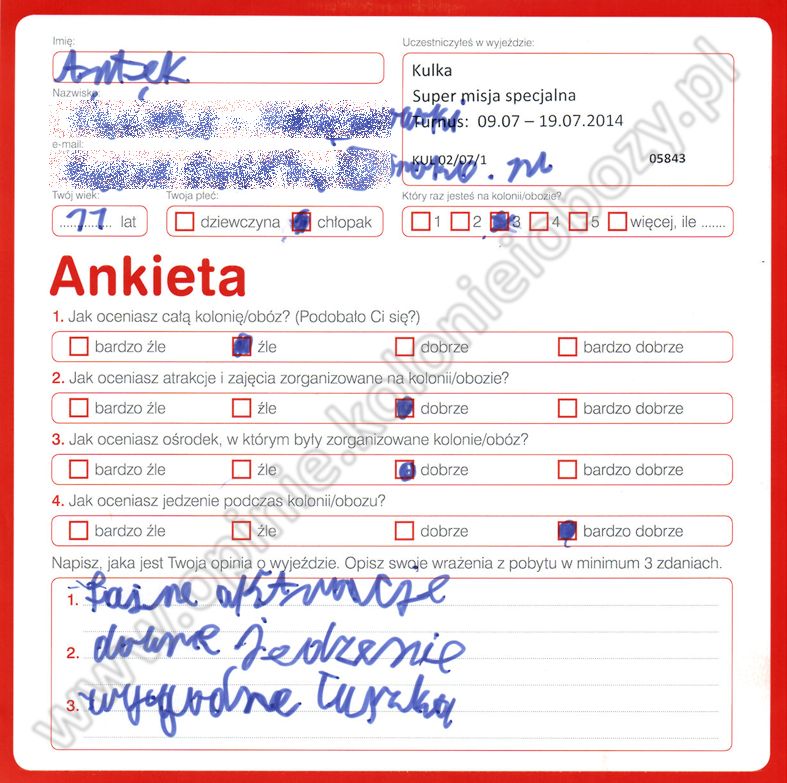 Imię:
Antek
Uczestniczyłeś w wyjeździe:
Kulka
Super misja specjalna
Turnus: 09.07 – 19.07.2014
KUL02/07/1 05843
Nazwisko:
e-mail:
Twój wiek:
11 lat
Twoja płeć:
dziewczyna chłopak
Który raz jesteś na kolonii/obozie?
1 2 3 4 5 więcej, ile .......
Ankieta
1. Jak oceniasz całą kolonię/obóz? (Podobało Ci się?)
bardzo źle źle dobrze bardzo dobrze
2. Jak oceniasz atrakcje i zajęcia zorganizowane na kolonii/obozie?
bardzo źle źle dobrze bardzo dobrze
3. Jak oceniasz ośrodek, w którym były zorganizowane kolonie/obóz?
bardzo źle źle dobrze bardzo dobrze
4. Jak oceniasz jedzenie podczas kolonii/obozu?
bardzo źle źle dobrze bardzo dobrze
Napisz, jaka jest Twoja opinia o wyjeździe. Opisz swoje wrażenia z pobytu w minimum 3 zdaniach.
1.
2. jedzenie
3. wygodne
www.opinie.kolonieiobozy.pl